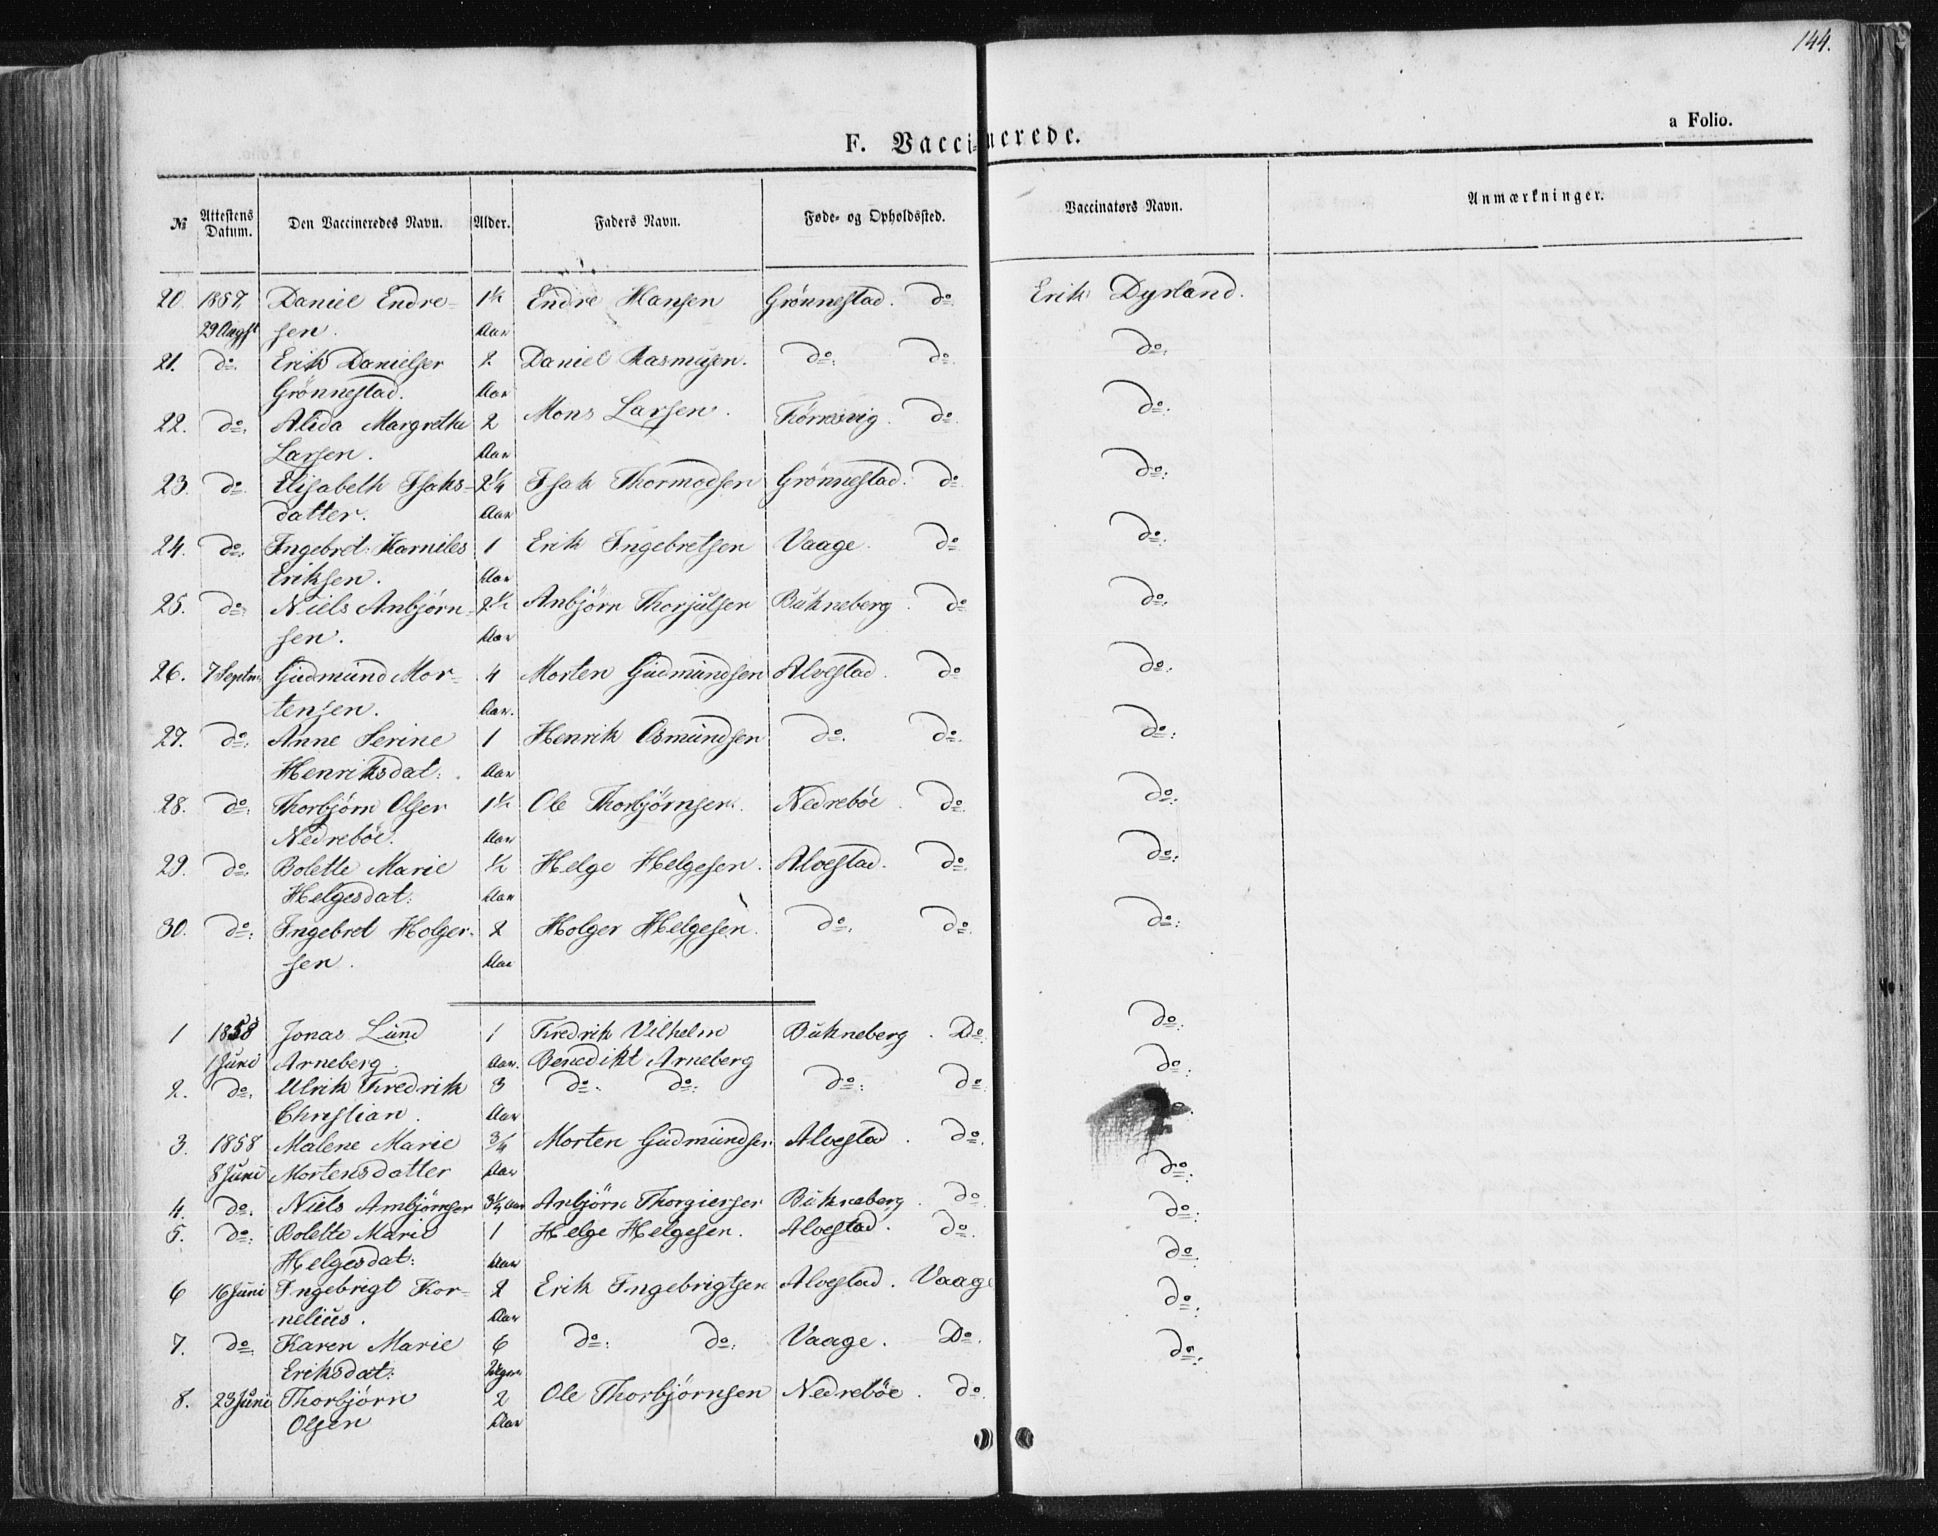 144.
a Folio.
F. Vaccinerede.
№ Attestens Datum. Den Vaccineredes Navn. Alder. Faders Navn. Føde- og Opholdssted. Vaccinators Navn. Anmærkninger.
20. 1857. Daniel Endre- 1½ Endre Hansen Grönnestad. do. Erik Dyrland.
29 Augst sen. Aar
21. do. Erik Danielsen 2 Daniel Rasmusen. do. do. do.
Grönnestad. Aar
22. do. Alida Margrethe 2 Mons Larsen. do. do.
Larsen. Aar
23. do. Elisabeth Isaks- 2¼ Isak Thormodsen Grönnestad. do. do.
datter. Aar
24. do. Ingebret Karniles 1 Erik Ingebretsen Vaage. do. do.
Eriksen. Aar
25. do. Niels Anbjörn- 2½ Anbjörn Thorjulsen Bukneberg. do. do.
sen. Aar
26. 7 Septm. Gudmund Mor- 4 Morten Gudmundsen Alvestad. do. do.
tensen. Aar.
27. do. Anne Serine 1 Henrik Osmundsen do. do. do.
Henriksdat: Aar
28. do. Thorbjörn Olsen 1½ Ole Thorbjörnsen. Nedreböe. do. do.
Nedreböe. Aar
29. do. Bolette Marie ½ Helge Helgesen. Alvestad. do. do.
Helgesdat: Aar
30. do. Ingebret Holger- 2 Holger Helgesen. do. do. do.
sen. Aar
1 1858 Jonas Lund 1 Fredrik Vilhelm Bukneberg. Do. do.
1 Juni Arneberg. Aar. Benedikt Arneberg
2. do. Ulrik Fredrik 3 do. do. do. do. do.
Christian. Aar
3. 1858 Malene Marie ¾ Morten Gudmundsen Alvestad. do. do.
8 Juni Mortensdatter Aar
4. do. Niels Ambjörnsen 3¼ Aar Anbjörn Thorgiersen Bukneberg. do. do.
5. do. Bolette Marie 1 Helge Helgesen. Alvestad. do. do.
Helgesdat: Aar
6 16 Juni Ingebrigt Kor- 2 Erik Ingebrigtsen Alvestad. Vaage do.
nelius. Aar
7. do. Karen Marie 6 do. do. Vaage. Do. do.
Eriksdat:
8. 23 Juni Thorbjörn 2 Ole Thorbjörnsen Nedreböe. do. do.
Olsen Aar